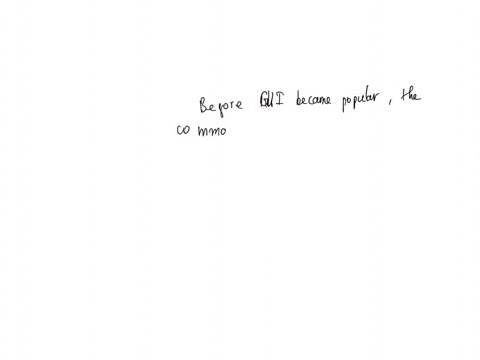 Before GUI became popular, the
co mmo